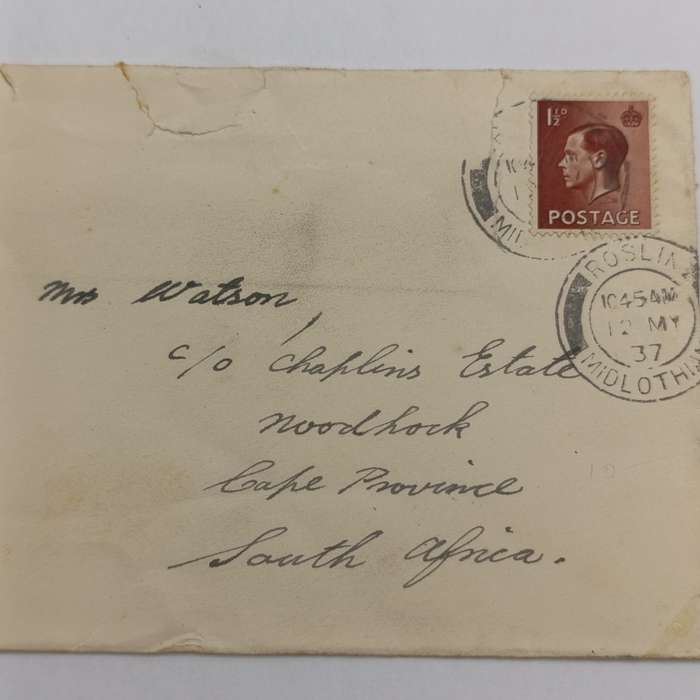 1½D
POSTAGE
MI
ROSLIN
10 45 AM
12 MY
37
MIDLOTHI
Mrs Watson,
c/o Chaplins Estate
Noordhoek
Cape Province
South Africa.